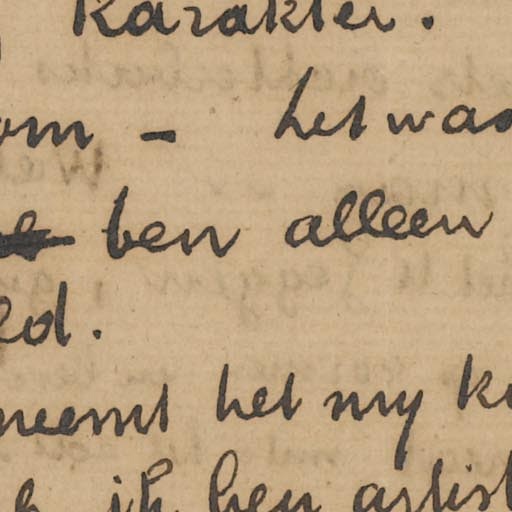 karakter.
om - het was
ben alleen
ed.
neemt het my k
ik ben artist